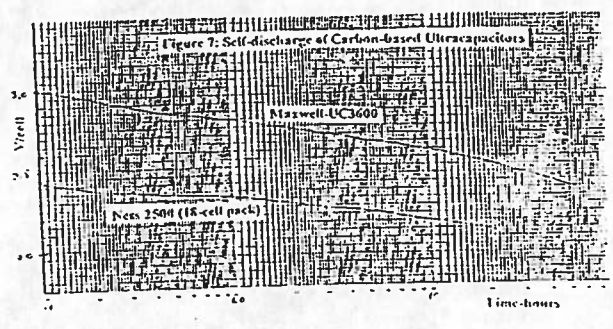 Figure 7: Self-discharge of Carbon-based Ultracapacitors
3.0
Maxwell-UC3600
V/cell
Ness 2500 (18-cell pack)
Time-hours